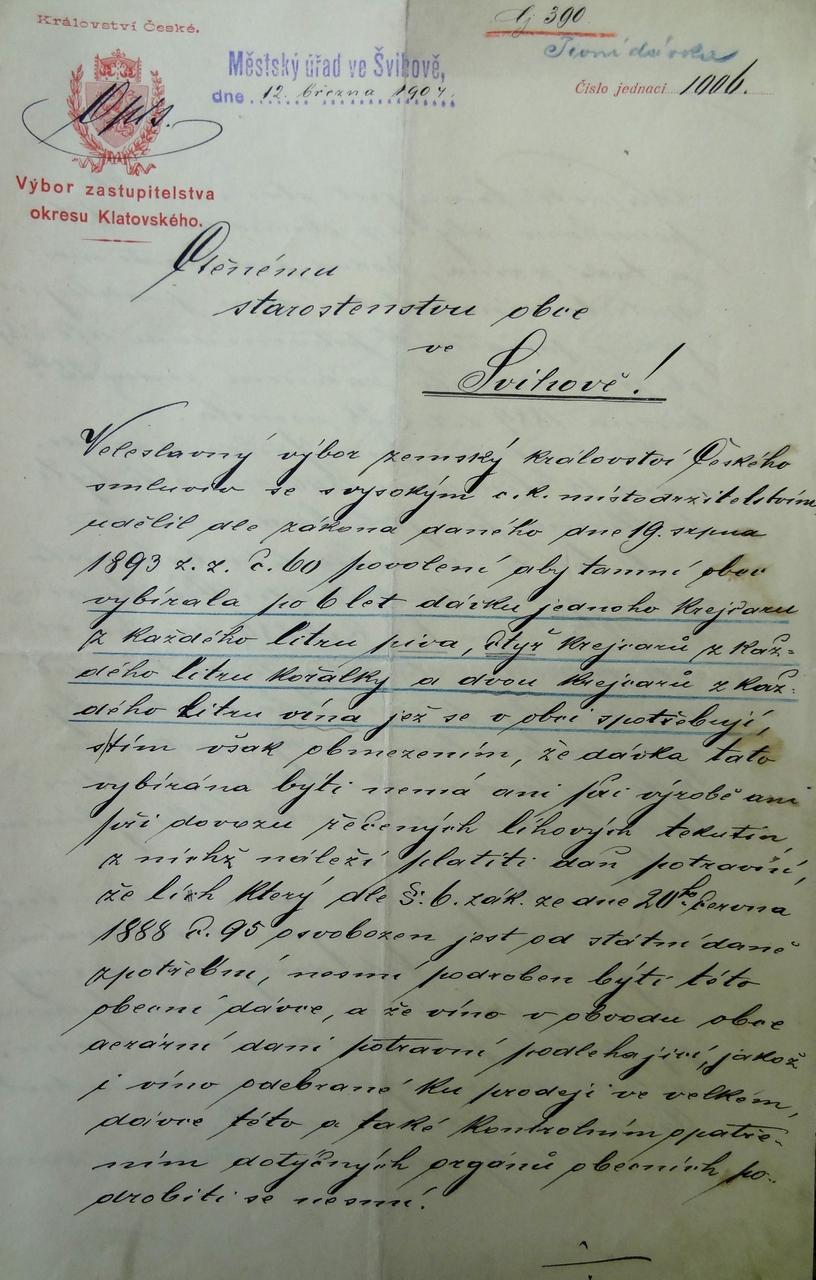 Království České.
Opis.
Výbor zastupitelstva
okresu Klatovského.
Městský úřad ve Švihově,
dne 12. března 1904.
G 390
Pivní dávka
Číslo jednací 1006.
Ctěnému
starostenstvu obce
ve
Švihově!
Veleslavný výbor zemský království Českého
smluviv se s vysokým c. k. místodržitelstvím
udělil dle zákona daného dne 19. srpna
1893 z. z. č. 60 povolení aby tamní obec
vybírala po 6 let dávku jednoho krejcaru
z každého litru piva, čtyř krejcarů z kaž-
dého litru kořalky a dvou krejcarů z kaž-
dého litru vína jež se v obci spotřebují,
s tím však obmezením, že dávka tato
vybírána býti nemá ani při výrobě ani
při dovozu řečených líhových tekutin,
z nichž náleží platiti daň potravní,
že líh který dle §. 6. zák. ze dne 20ho června
1888 č. 95 osvobozen jest od státní daně
zpotřební, nesmí podroben býti této
obecní dávce, a že víno v obvodu obce
aerární dani potravní podléhající, jakož
i víno odebrané ku prodeji ve velkém,
dávce této a také kontrolním opatře-
ním dotyčných orgánů obecních po-
drobiti se nesmí.